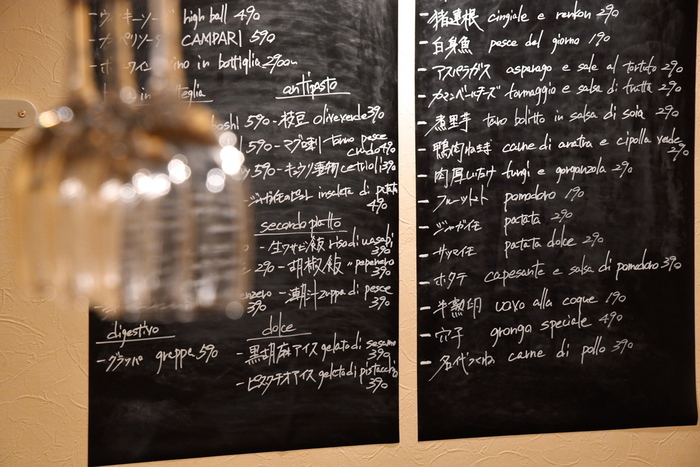 high ball 490
CAMPARI 590
vino in bottiglia 2900
antipasto
590 - 枝豆 olive verde 390
590 - マグロ刺 tonno pesce
crudo 490
590 - キュウリ cetrioli 390
insalata di patata
490
secondo piatto
- 生ワサビ飯 riso di wasabi
390
290 - 胡椒飯 〃 pepenero
390
- 潮汁 zuppa di pesce
390
390
digestivo
- グラッパ greppa 590
dolce
- 黒胡麻アイス gelato di sesamo
390
- ピスタチオアイス gelato di pistacchio
390
- 猪蓮根 cingiale e renkon 290
- 白身魚 pesce del giorno 190
- アスパラガス asparago e sale al tartufo 290
- カマンベールチーズ formaggio e salsa di frutta 290
- 煮里芋 taro bolitto in salsa di soia 290
- 鴨肉ねぎ carne di anatra e cipolla verde
290
- 肉厚しいたけ fungi e gorgonzola 290
- フルーツトマト pomodoro 190
- ジャガイモ patata 290
- サツマイモ patata dolce 290
- ホタテ capesante e salsa di pomodoro 390
- 半熟卵 uovo alla coque 190
- 穴子 grongo speciale 490
- 名代つくね carne di pollo 390